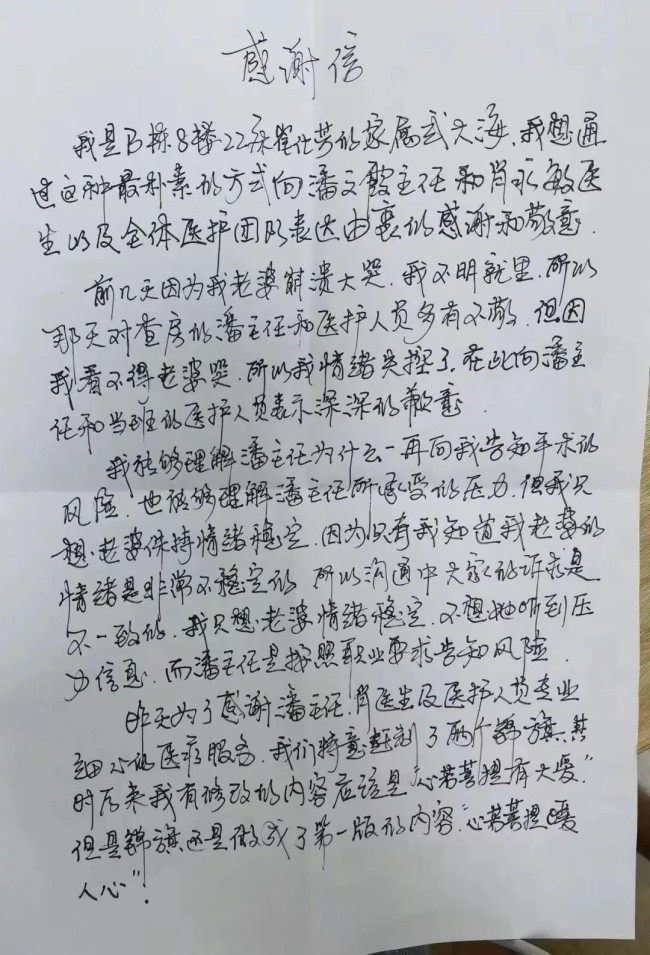 感谢信
我是B栋8楼22床崔仕芳的家属武大海，我想通
过这种最朴素的方式向潘文霞主任和肖永敏医
生以及全体医护团队表达由衷的感谢和敬意.
前几天因为我老婆崩溃大哭，我不明就里.所以
那天对查房的潘主任和医护人员多有不敬，但因
我看不得老婆哭.所以我情绪失控了.在此向潘主
任和当班的医护人员表示深深的歉意.
我能够理解潘主任为什么一再向我告知手术的
风险.也能够理解潘主任所承受的压力.但我只
想老婆保持情绪稳定.因为只有我知道我老婆的
情绪是非常不稳定的 所以沟通中大家的诉求是
不一致的.我只想老婆情绪稳定.不想她听到压
力信息.而潘主任是按照职业要求告知风险.
昨天为了感谢潘主任.肖医生及医护人员专业
细心的医疗服务.我们特意赶制了两个锦旗.其
时后来我有修改的内容应该是“心若菩提有大爱”
但是锦旗还是做成了第一版的内容“心若菩提暖
人心”!